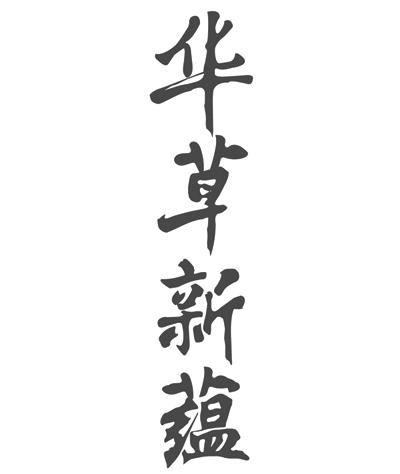 华草新蕴